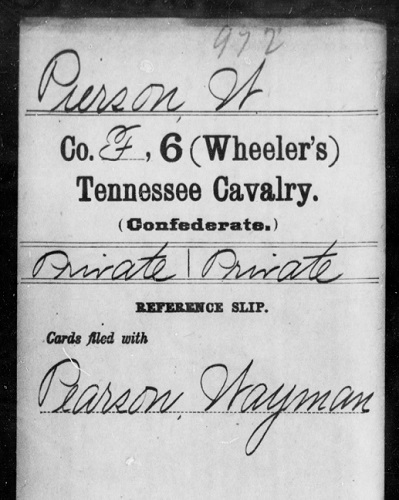 972
Pierson, W
Co. F, 6 (Wheeler's)
Tennessee Cavalry.
(Confederate.)
Private | Private
REFERENCE SLIP.
Cards filed with
Pearson, Wayman